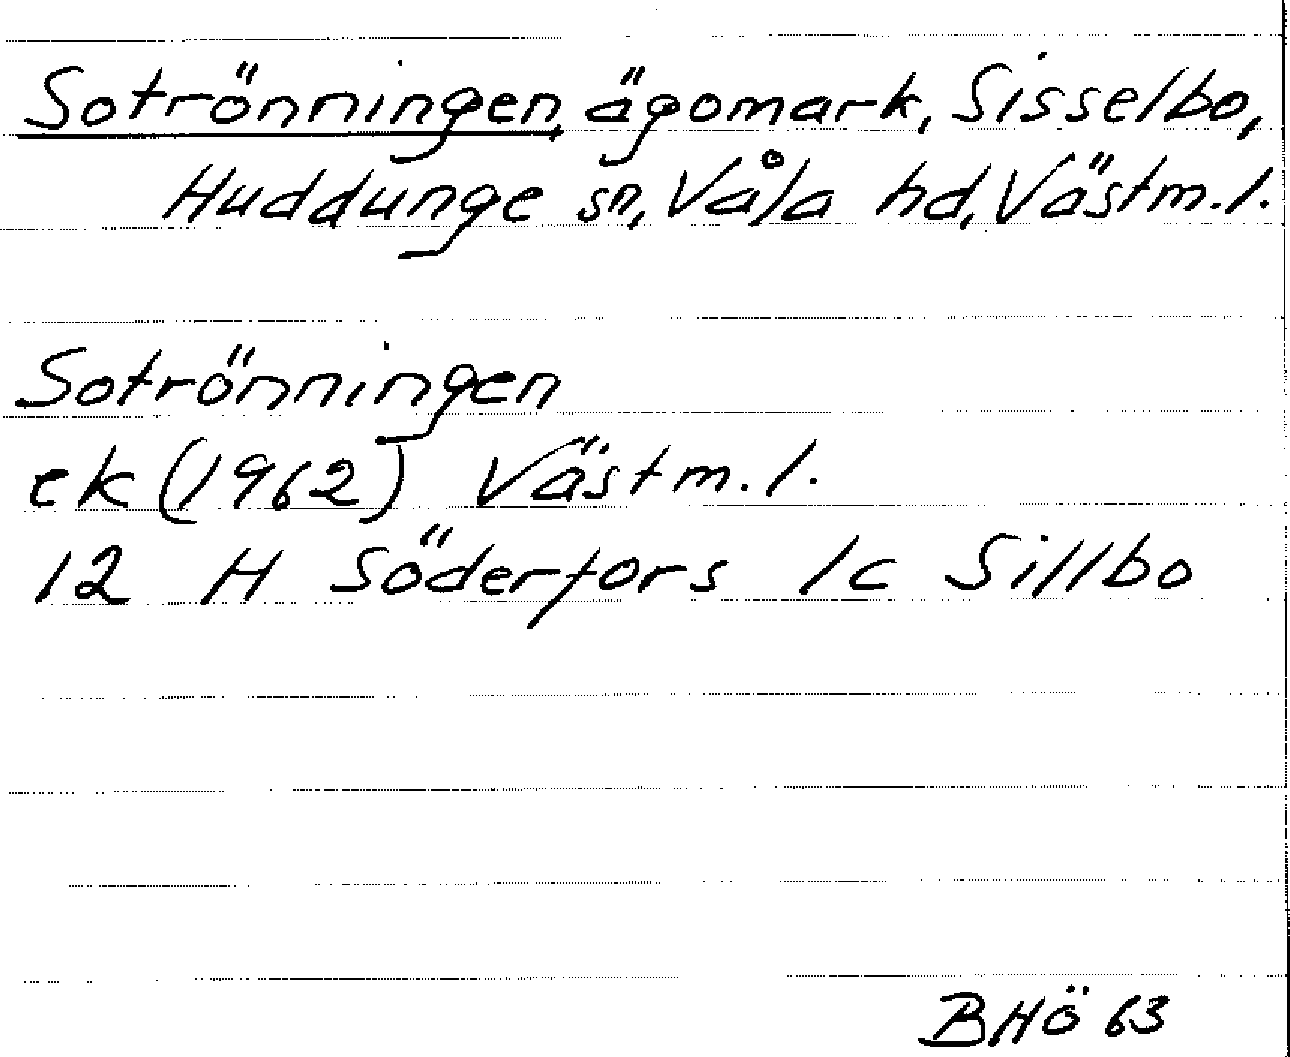 Sotrönningen, ägomark, Sisselbo,
Huddunge sn, Våla hd, Västm.l.
Sotrönningen
ek (1962) Västm.l.
12 H Söderfors 1c Sillbo
BHÖ 63